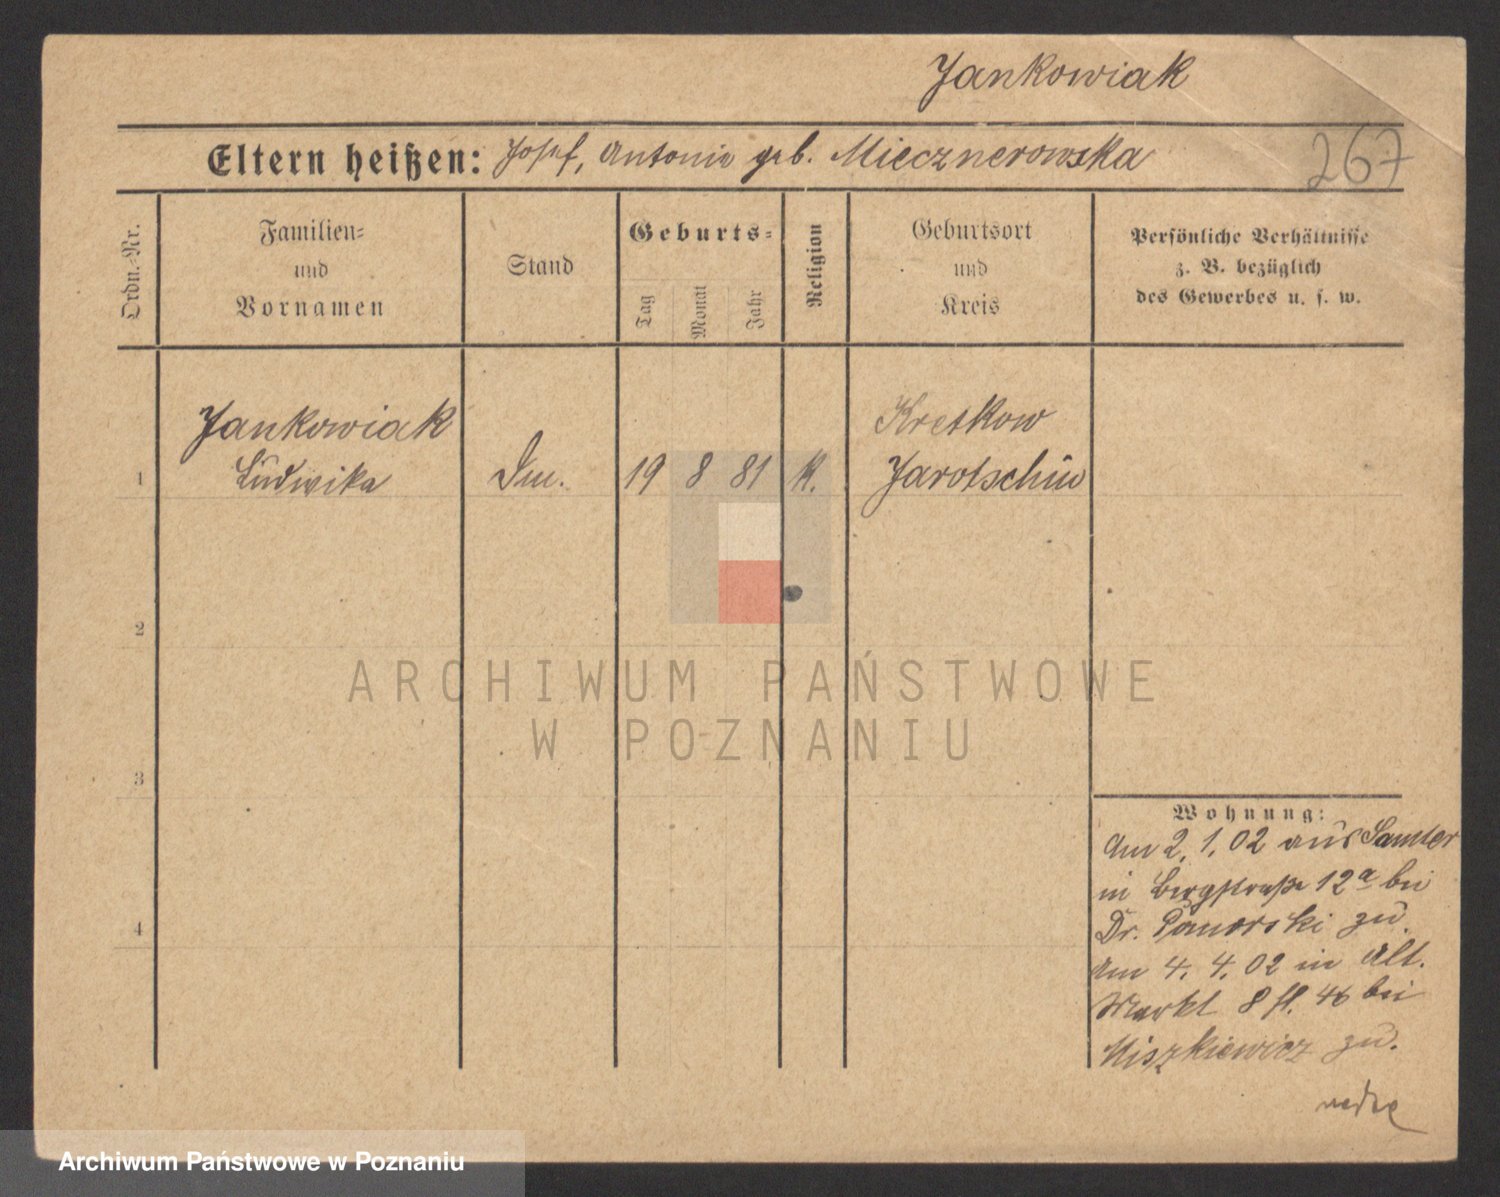 Jankowiak
Eltern heißen: Josef, Antonie geb. Miecznerowska
267
Ordn.-Nr.
Familien-
und
Vornamen
Stand
Geburts-
Tag
Monat
Jahr
Religion
Geburtsort
und
Kreis
Persönliche Verhältnisse
z. B. bezüglich
des Gewerbes u. s. w.
Jankowiak
Ludwika
1
19 8 81 K.
Kretkow
Jarotschin
2
3
4
Wohnung:
Am 2. 1. 02 aus Samter
in Bergstraße 12a bei
Dr. zu.
Am 4. 4. 02 in Alt.
Markt 8 bei
zu.
ARCHIWUM PAŃSTWOWE
W POZNANIU
Archiwum Państwowe w Poznaniu